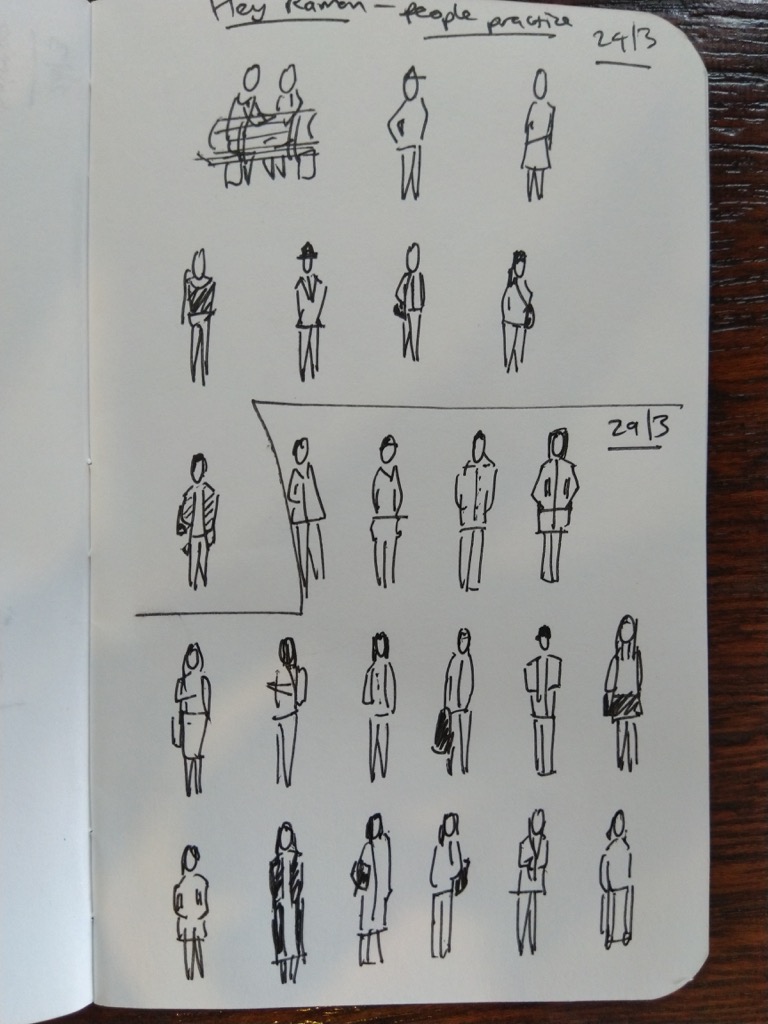 Hey Ramon — people practice
24/3
29/3